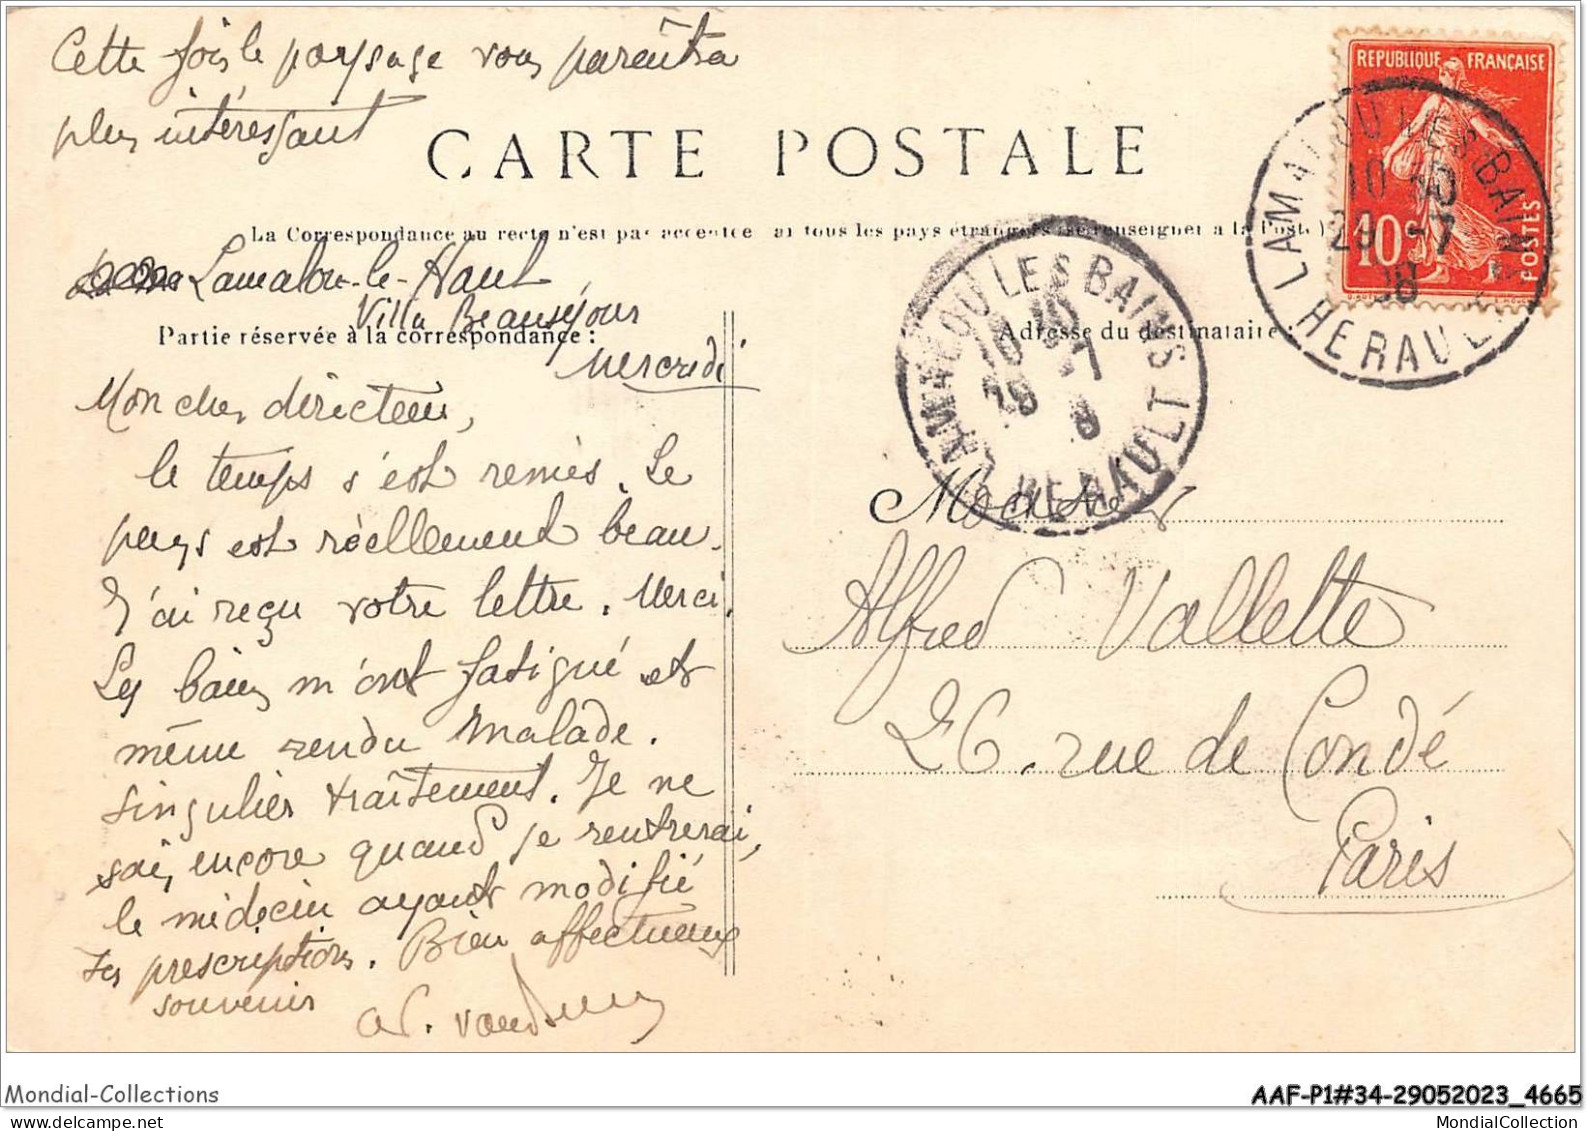 Cette fois le paysage vous paraîtra
plus intéressant
CARTE POSTALE
La Correspondance au recto n'est pas acceptée par tous les pays étrangers (se renseigner à la Poste)
Lamalou-le-Haut
Villa Beauséjour
Partie réservée à la correspondance :
Mercredi
Mon cher directeur,
le temps s'est remis. Le
pays est réellement beau.
J'ai reçu votre lettre. Merci.
Les bains m'ont fatigué et
même rendu malade.
singulier traitement. Je ne
sais encore quand je rentrerai,
le médecin ayant modifié
ses prescriptions. Bien affectueux
souvenir
REPUBLIQUE FRANÇAISE
10c
POSTES
LAMALOU LES BAINS
10 30
29 -7
08
HERAULT
LAMALOU LES BAINS
HERAULT
Adresse du destinataire :
Alfred Vallette
26. rue de Condé
Paris
Mondial-Collections
AAF-P1#34-29052023_4665
MondialCollection